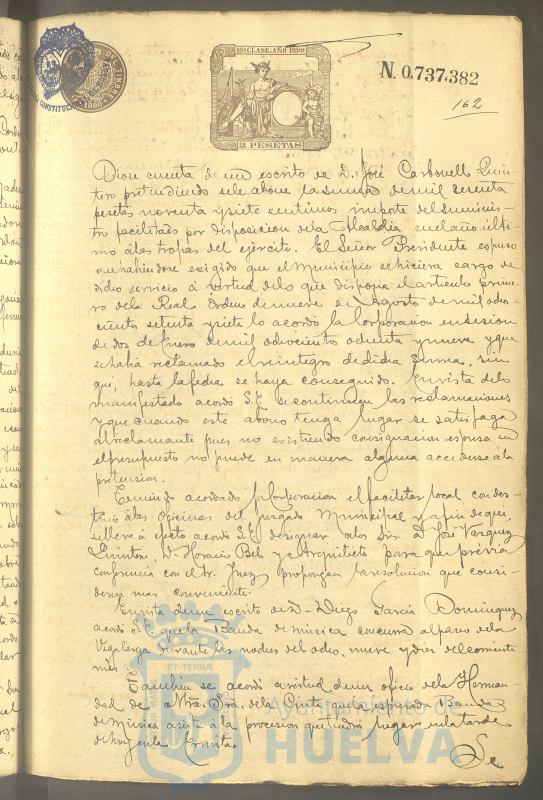 10ª CLASE. AÑO 1890
2 PESETAS
N. 0.737.382
162
Diose cuenta de un escrito de D. José Carbonell Quin-
tero pretendiendo se le abone la suma de mil sesenta
pesetas noventa y siete centimos importe del suminis-
tro facilitado por disposicion de la Alcaldia en el año ulti-
mo á las tropas del ejército. El Señor Presidente expuso
que habiendose exigido que el Municipio se hiciera cargo de
dicho servicio á virtud de lo que dispone el articulo prime-
ro de la Real Orden de nueve de Agosto de mil ocho-
cientos setenta y siete lo acordó la Corporacion en sesion
de dos de Enero de mil ochocientos ochenta y nueve y que
se habia reclamado el reintegro de dicha suma, sin
que, hasta la fecha se haya conseguido. En vista de lo
manifestado acordó S.E. se continuen las reclamaciones
y que cuando este abono tenga lugar se satisfaga
al reclamante pues no existiendo consignacion expresa en
el presupuesto no puede en manera alguna accederse á la
pretension.
Teniendo acordado la Corporacion el facilitar local con des-
tino á las oficinas del Juzgado Municipal y á fin de que
se lleve á efecto acordó S.E. designar á los Sres. D. José Vazquez
D. Horacio Bel y Arquitecto para que prévia
conferencia con el Sr. Juez propongan la solucion que consi-
deren mas conveniente.
En vista de un escrito de D. Diego Garcia Dominguez
acordó S.E. que la Banda de música concurra al paseo de la
Vega larga durante las noches del ocho, nueve y diez del corriente
mes.
Tambien se acordó á virtud de un oficio de la Herman-
dad de Ntra. Sra. de la Cinta que la expresada Banda
de música asista á la procesion que tendrá lugar en la tarde
de hoy en la Ermita.
Se
ET TERRÆ
Ayuntamiento de
HUELVA